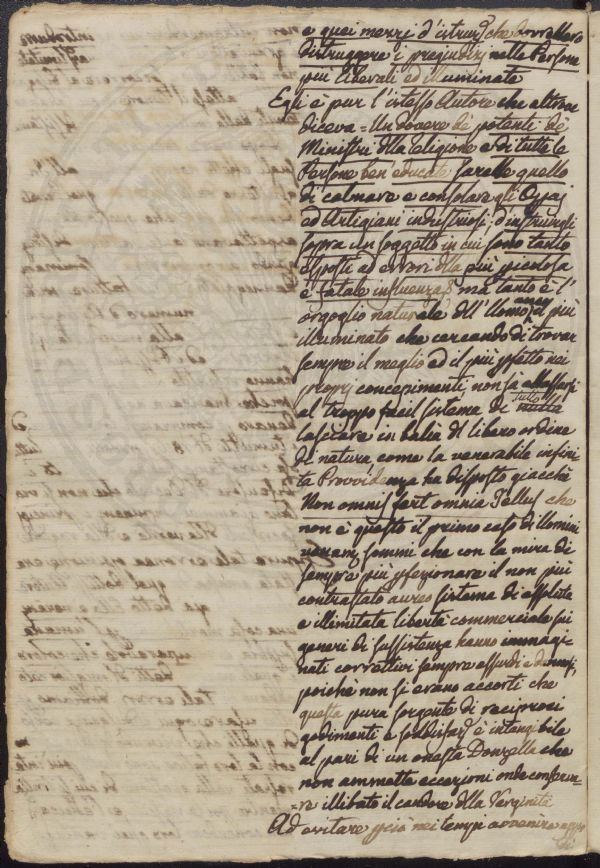 e quei mezzi d'istruz.e che dovrebbero
distruggere i pregiudizj nelle Persone
più liberali ed illuminate
Egli è pur l'istesso Autore che altrove
diceva = Un dovere de' potenti de'
Ministri dlla religione e di tutte le
Persone ben educate sarebbe quello
di calmare e consolare gli Operaj
ed Artigiani industriosi, d'instruirgli
sopra un soggetto in cui sono tanto
esposti ad errori dlla più pericolosa
e fatale influenza = ma tanto è l'
orgoglio naturale dll'Uomo anco il più
illuminato che cercando di trovar
sempre il meglio ed il più pfetto nei
proprj concepimenti, non sà adattarsi
al troppo facil sistema di tutto
lasciare in balìa dl libero ordine
di natura come la venerabile infini
ta Provvidenza ha disposto giacchè
Non omnis fert omnia Tellus che
non è questo il primo caso di Uomini
sommi che con la mira di
sempre più pfezionare il non più
contrastato aureo sistema di assoluta
e illimitata libertà commerciale sui
generi di sussistenza hanno immagi
nati correttivi sempre assurdi e dannosi,
poichè non si erano accorti che
questa pura sorgente di reciproci
godimenti e soddisfaz.i è intangibile
al pari di un onesta Donzella che
non ammette eccezioni onde conserva
=re illibato il candore dlla Verginità
Ad evitare pciò nei tempi avvenire